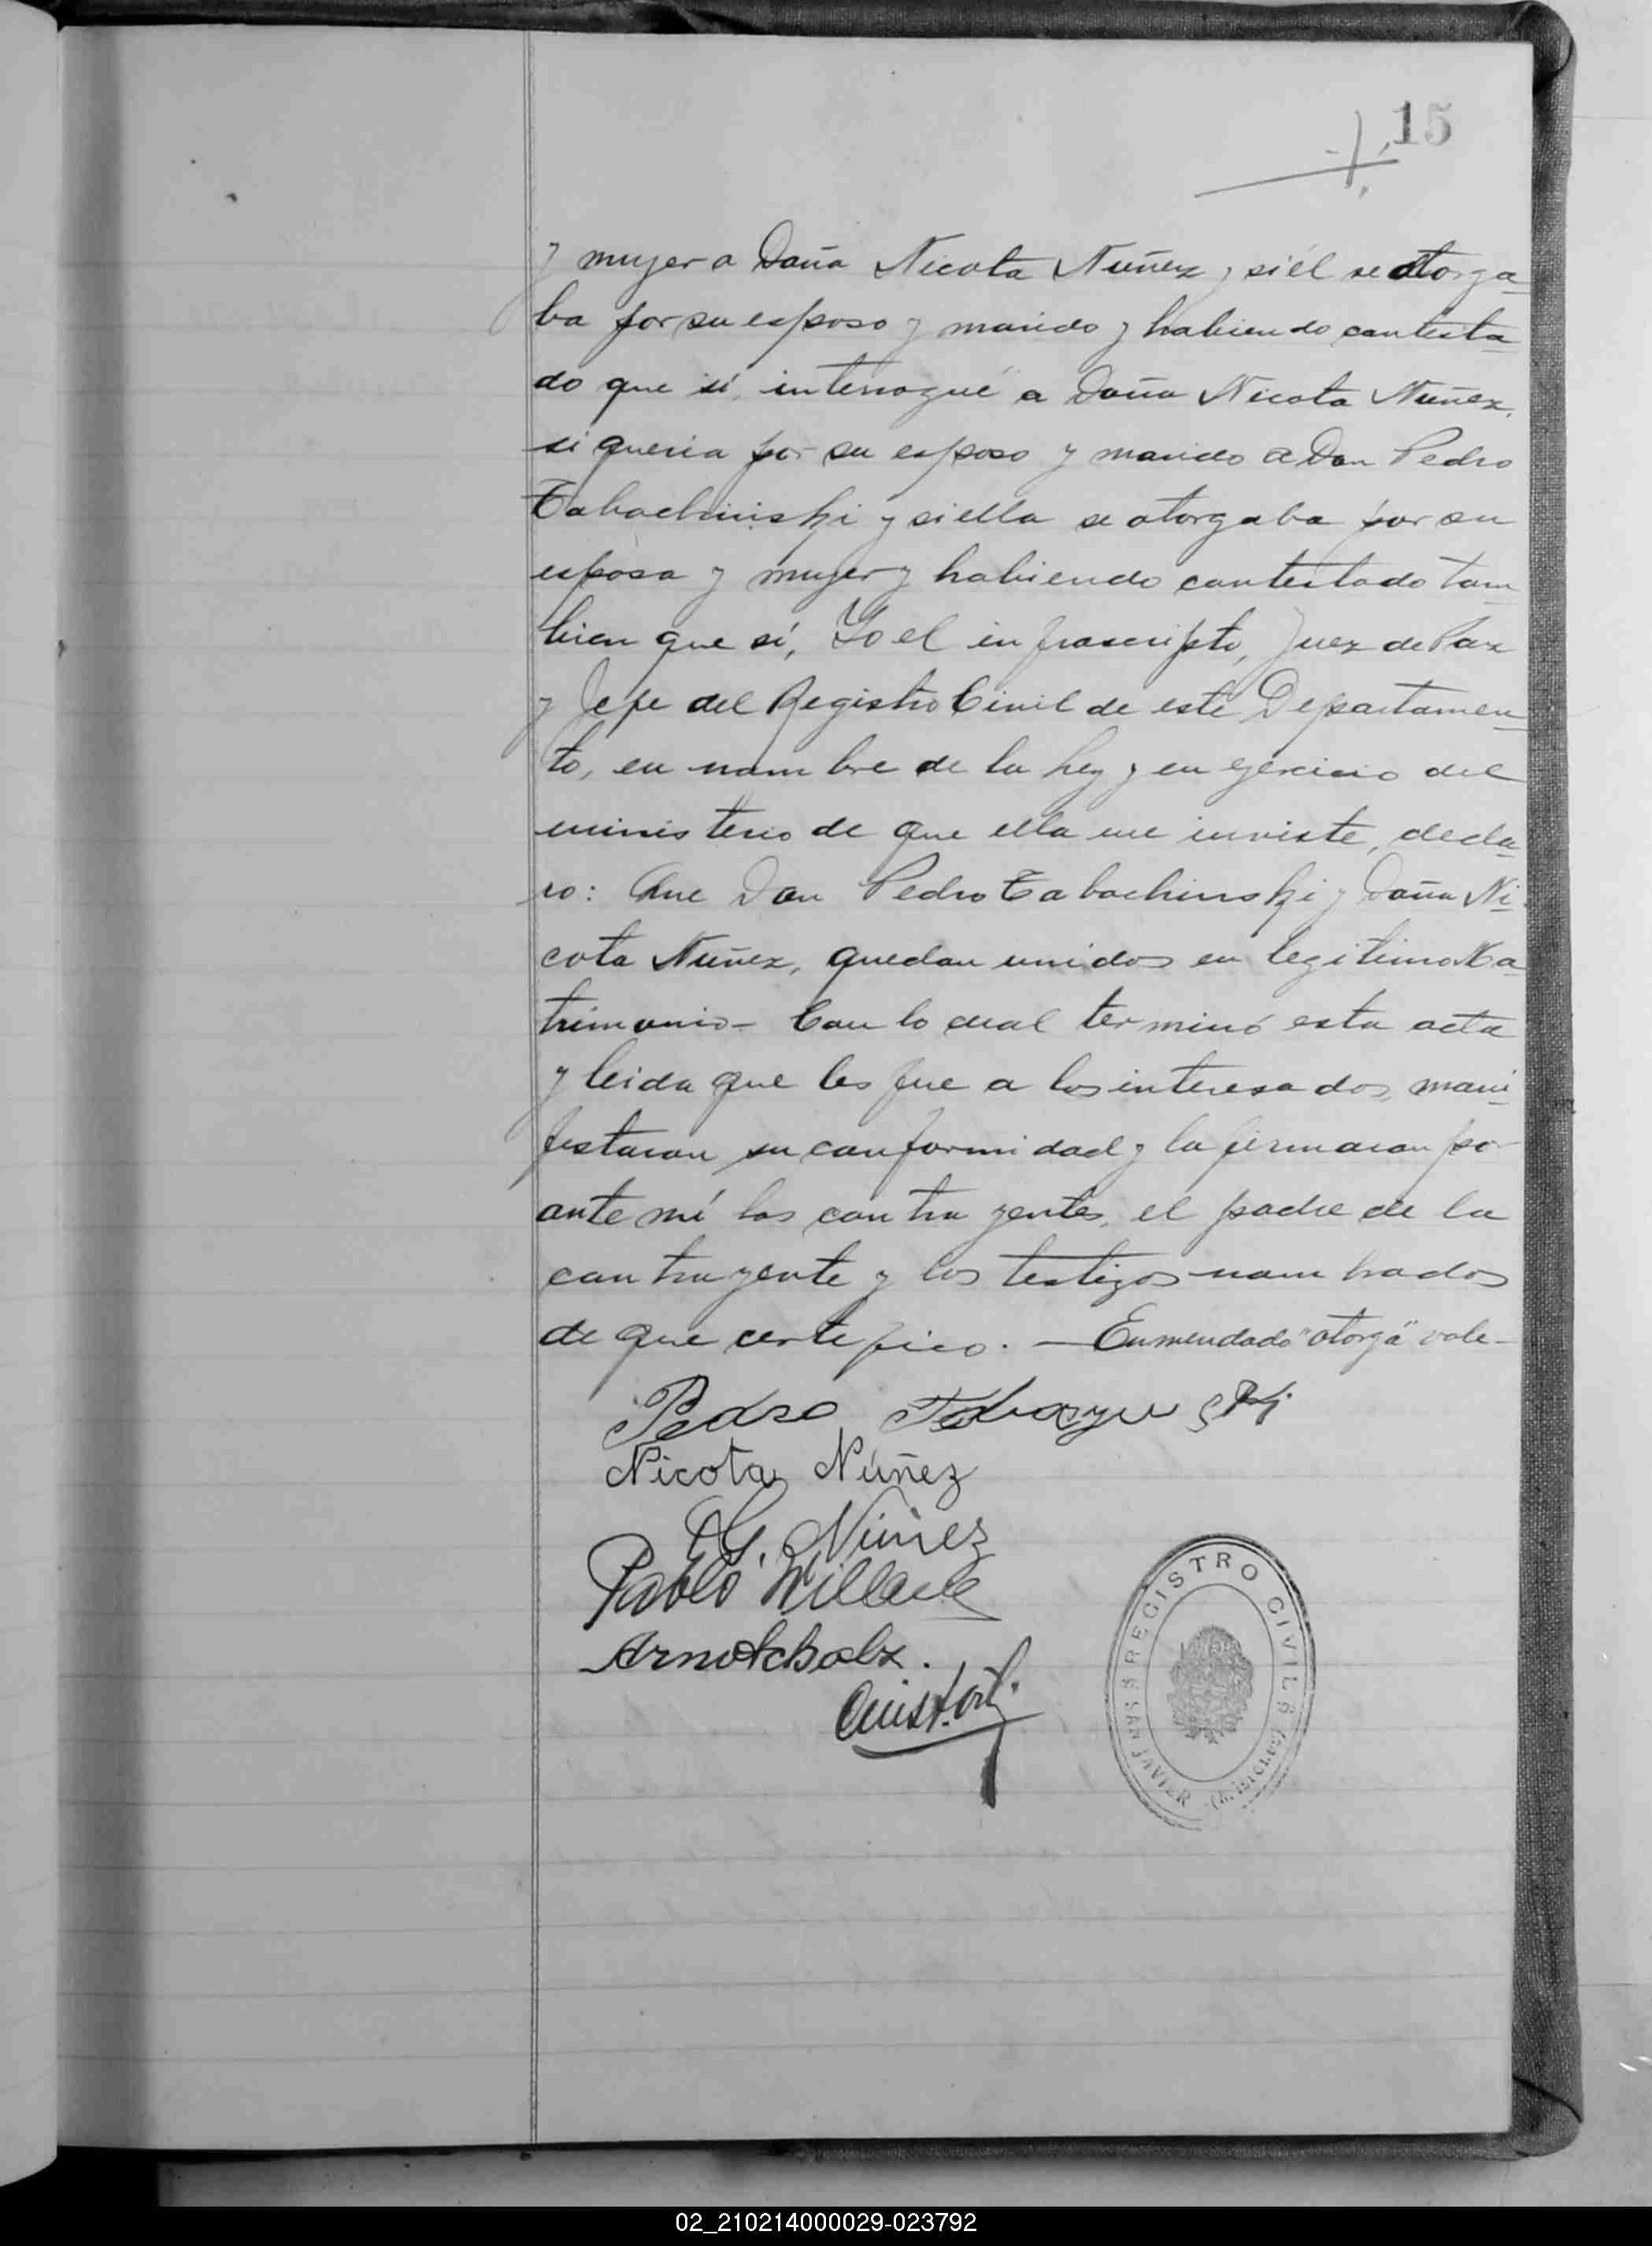 15
y mujer a Doña Nicota Nuñez y si él se otorga-
ba por su esposo y marido y habiendo contesta-
do que sí, interrogué a Doña Nicota Nuñez,
si queria por su esposo y marido a Don Pedro
Tabachinski y si ella se otorgaba por su
esposa y mujer y habiendo contestado tam-
bien que sí, Yo el infrascripto, Juez de Paz
y Jefe del Registro Civil de este Departamen-
to, en nombre de la Ley y en ejercicio del
ministerio de que ella me inviste, decla-
ro: Que Don Pedro Tabachinski y Doña Ni-
cota Nuñez, quedan unidos en legitimo Ma-
trimonio- Con lo cual terminó esta acta
y leida que les fue a los interesados, mani-
festaron su conformidad y la firmaron por
ante mí los contrayentes, el padre de la
contrayente y los testigos nombrados
de que certifico. — Enmendado "otorga" vale-
Pedro
Nicota Núñez
G. Núñez
Pablo
REGISTRO CIVIL
SAN JAVIER (MISIONES)
02_210214000029-023792